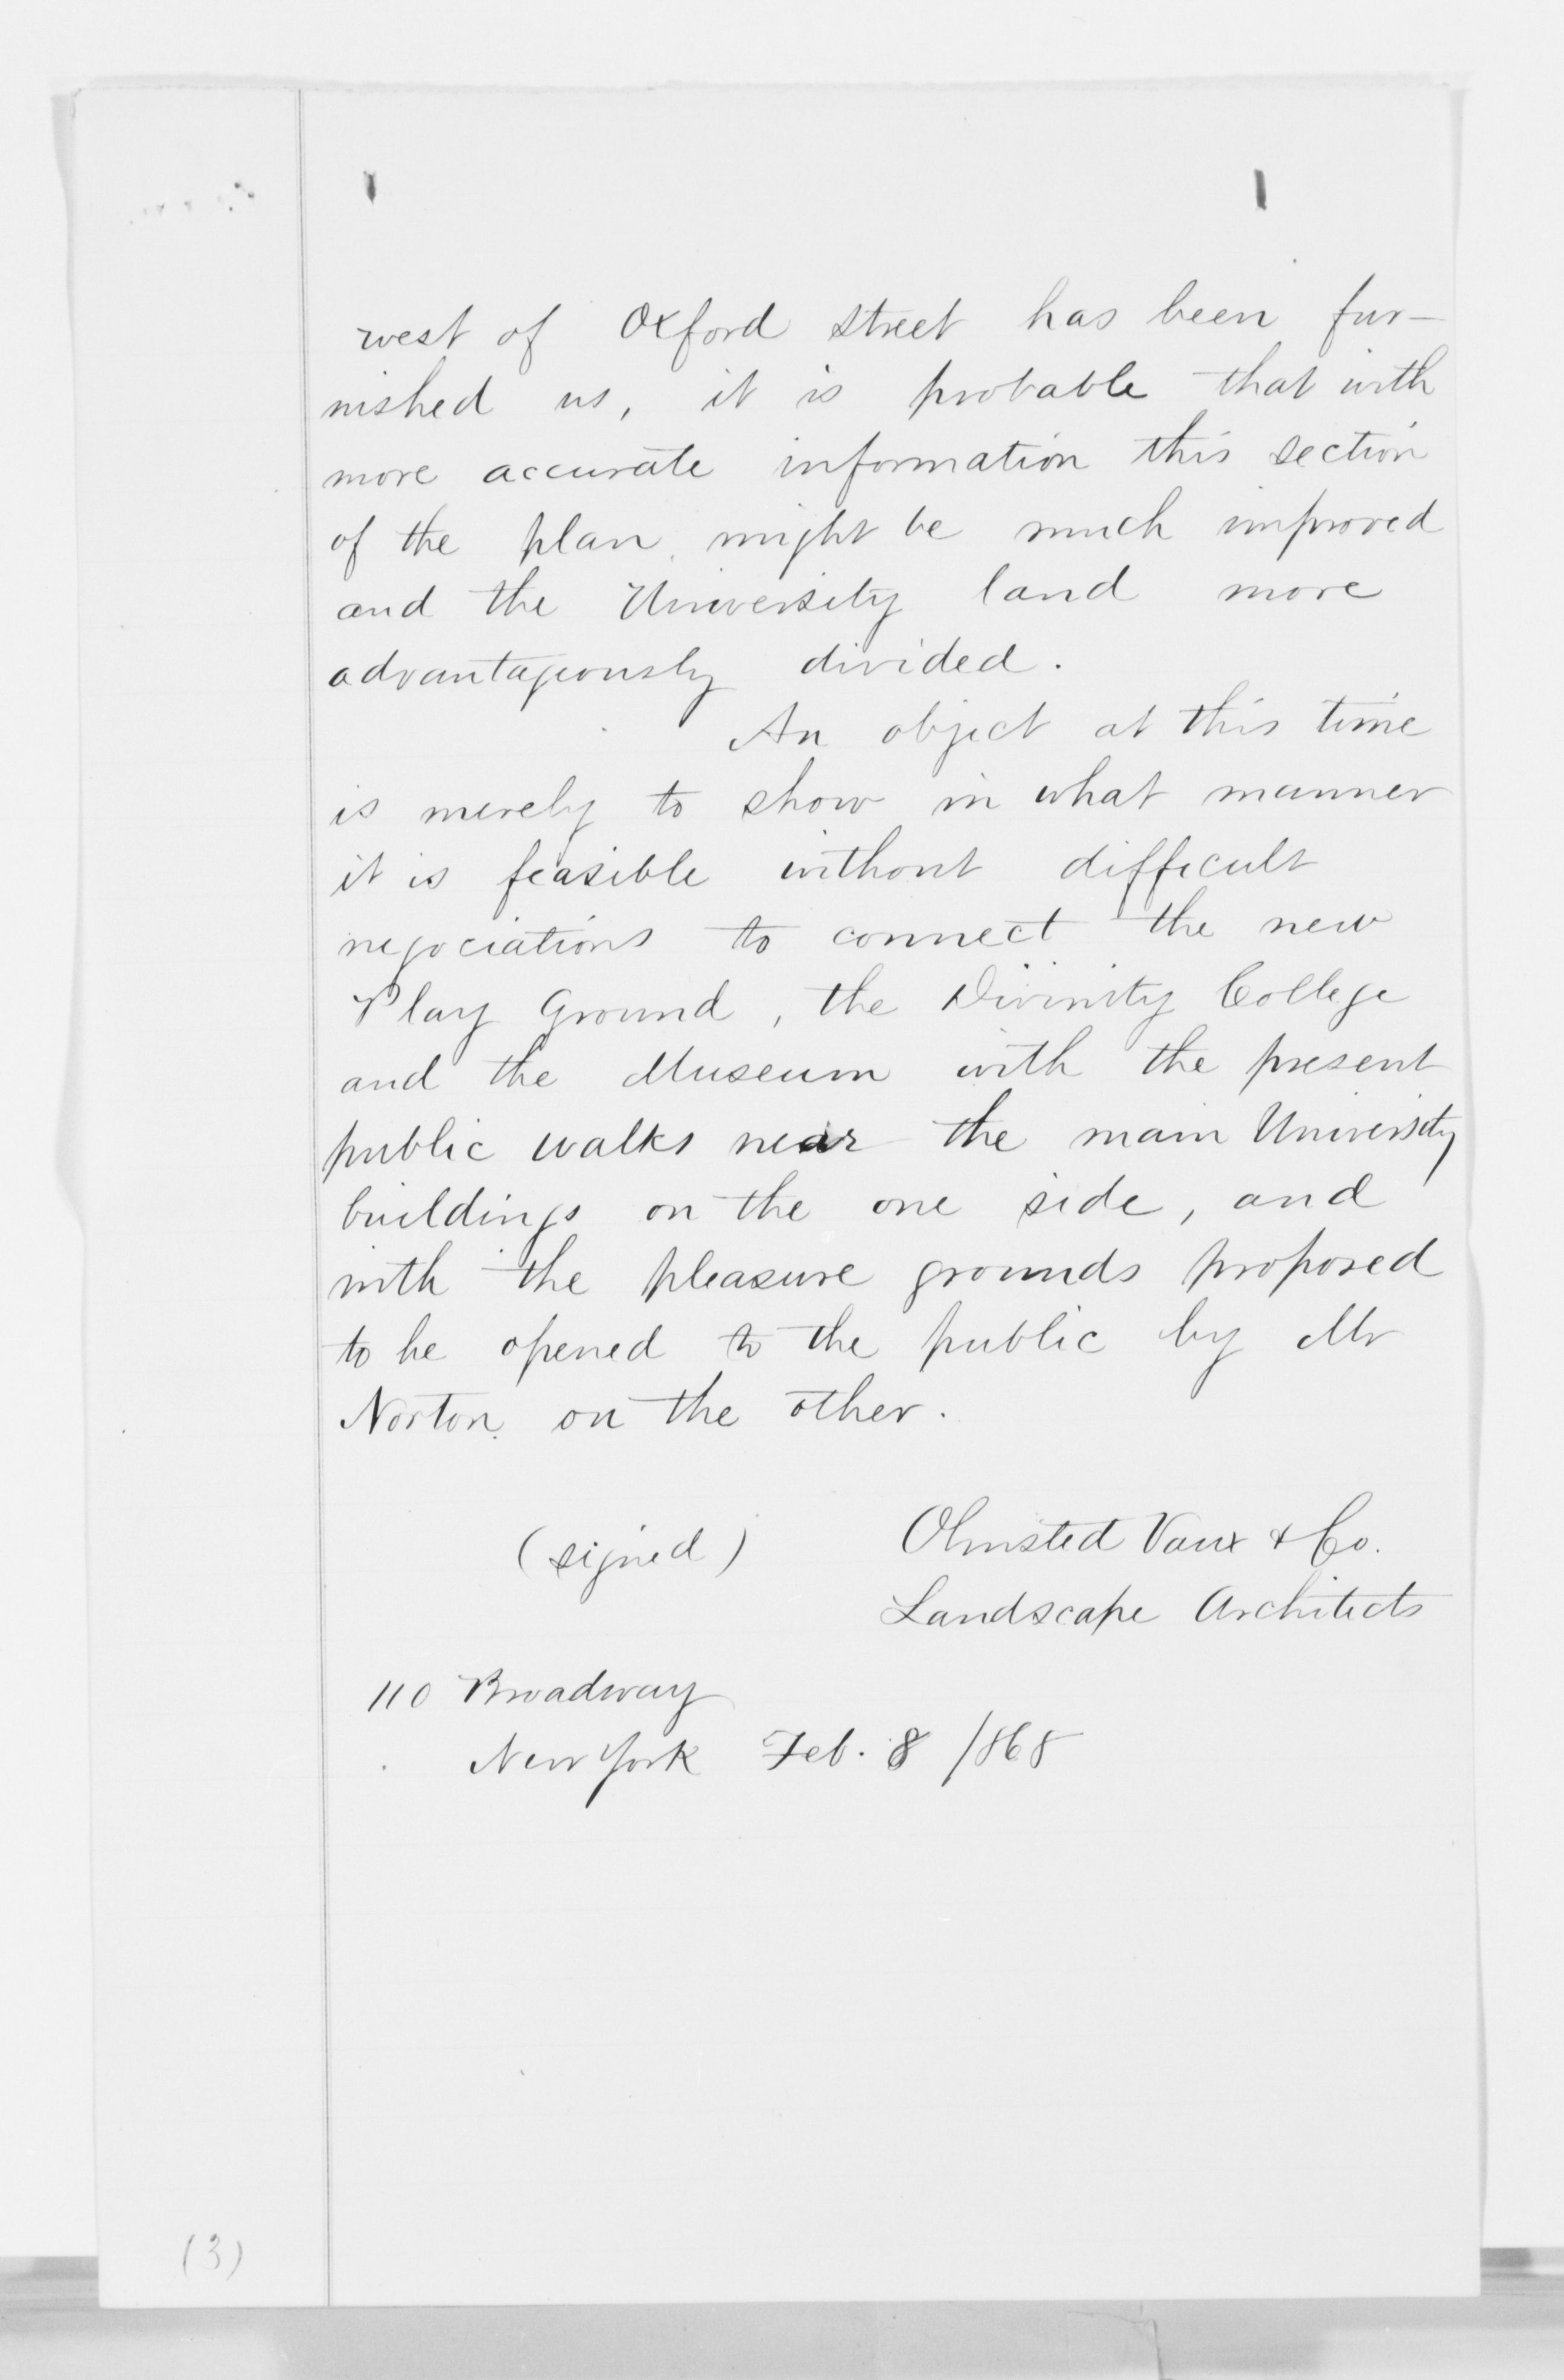 west of Oxford street has been fur-
nished us, it is probable that with
more accurate information this section
of the plan might be much improved
and the University land more
advantageously divided.
An object at this time
is merely to show in what manner
it is feasible without difficult
negociations to connect the new
Play Ground, the Divinity College
and the Museum with the present
public walks near the main University
buildings on the one side, and
with the pleasure grounds proposed
to be opened to the public by Mr
Norton on the other.
(signed) Olmsted Vaux & Co.
Landscape Architects
110 Broadway
New York Feb. 8 1868
(3)